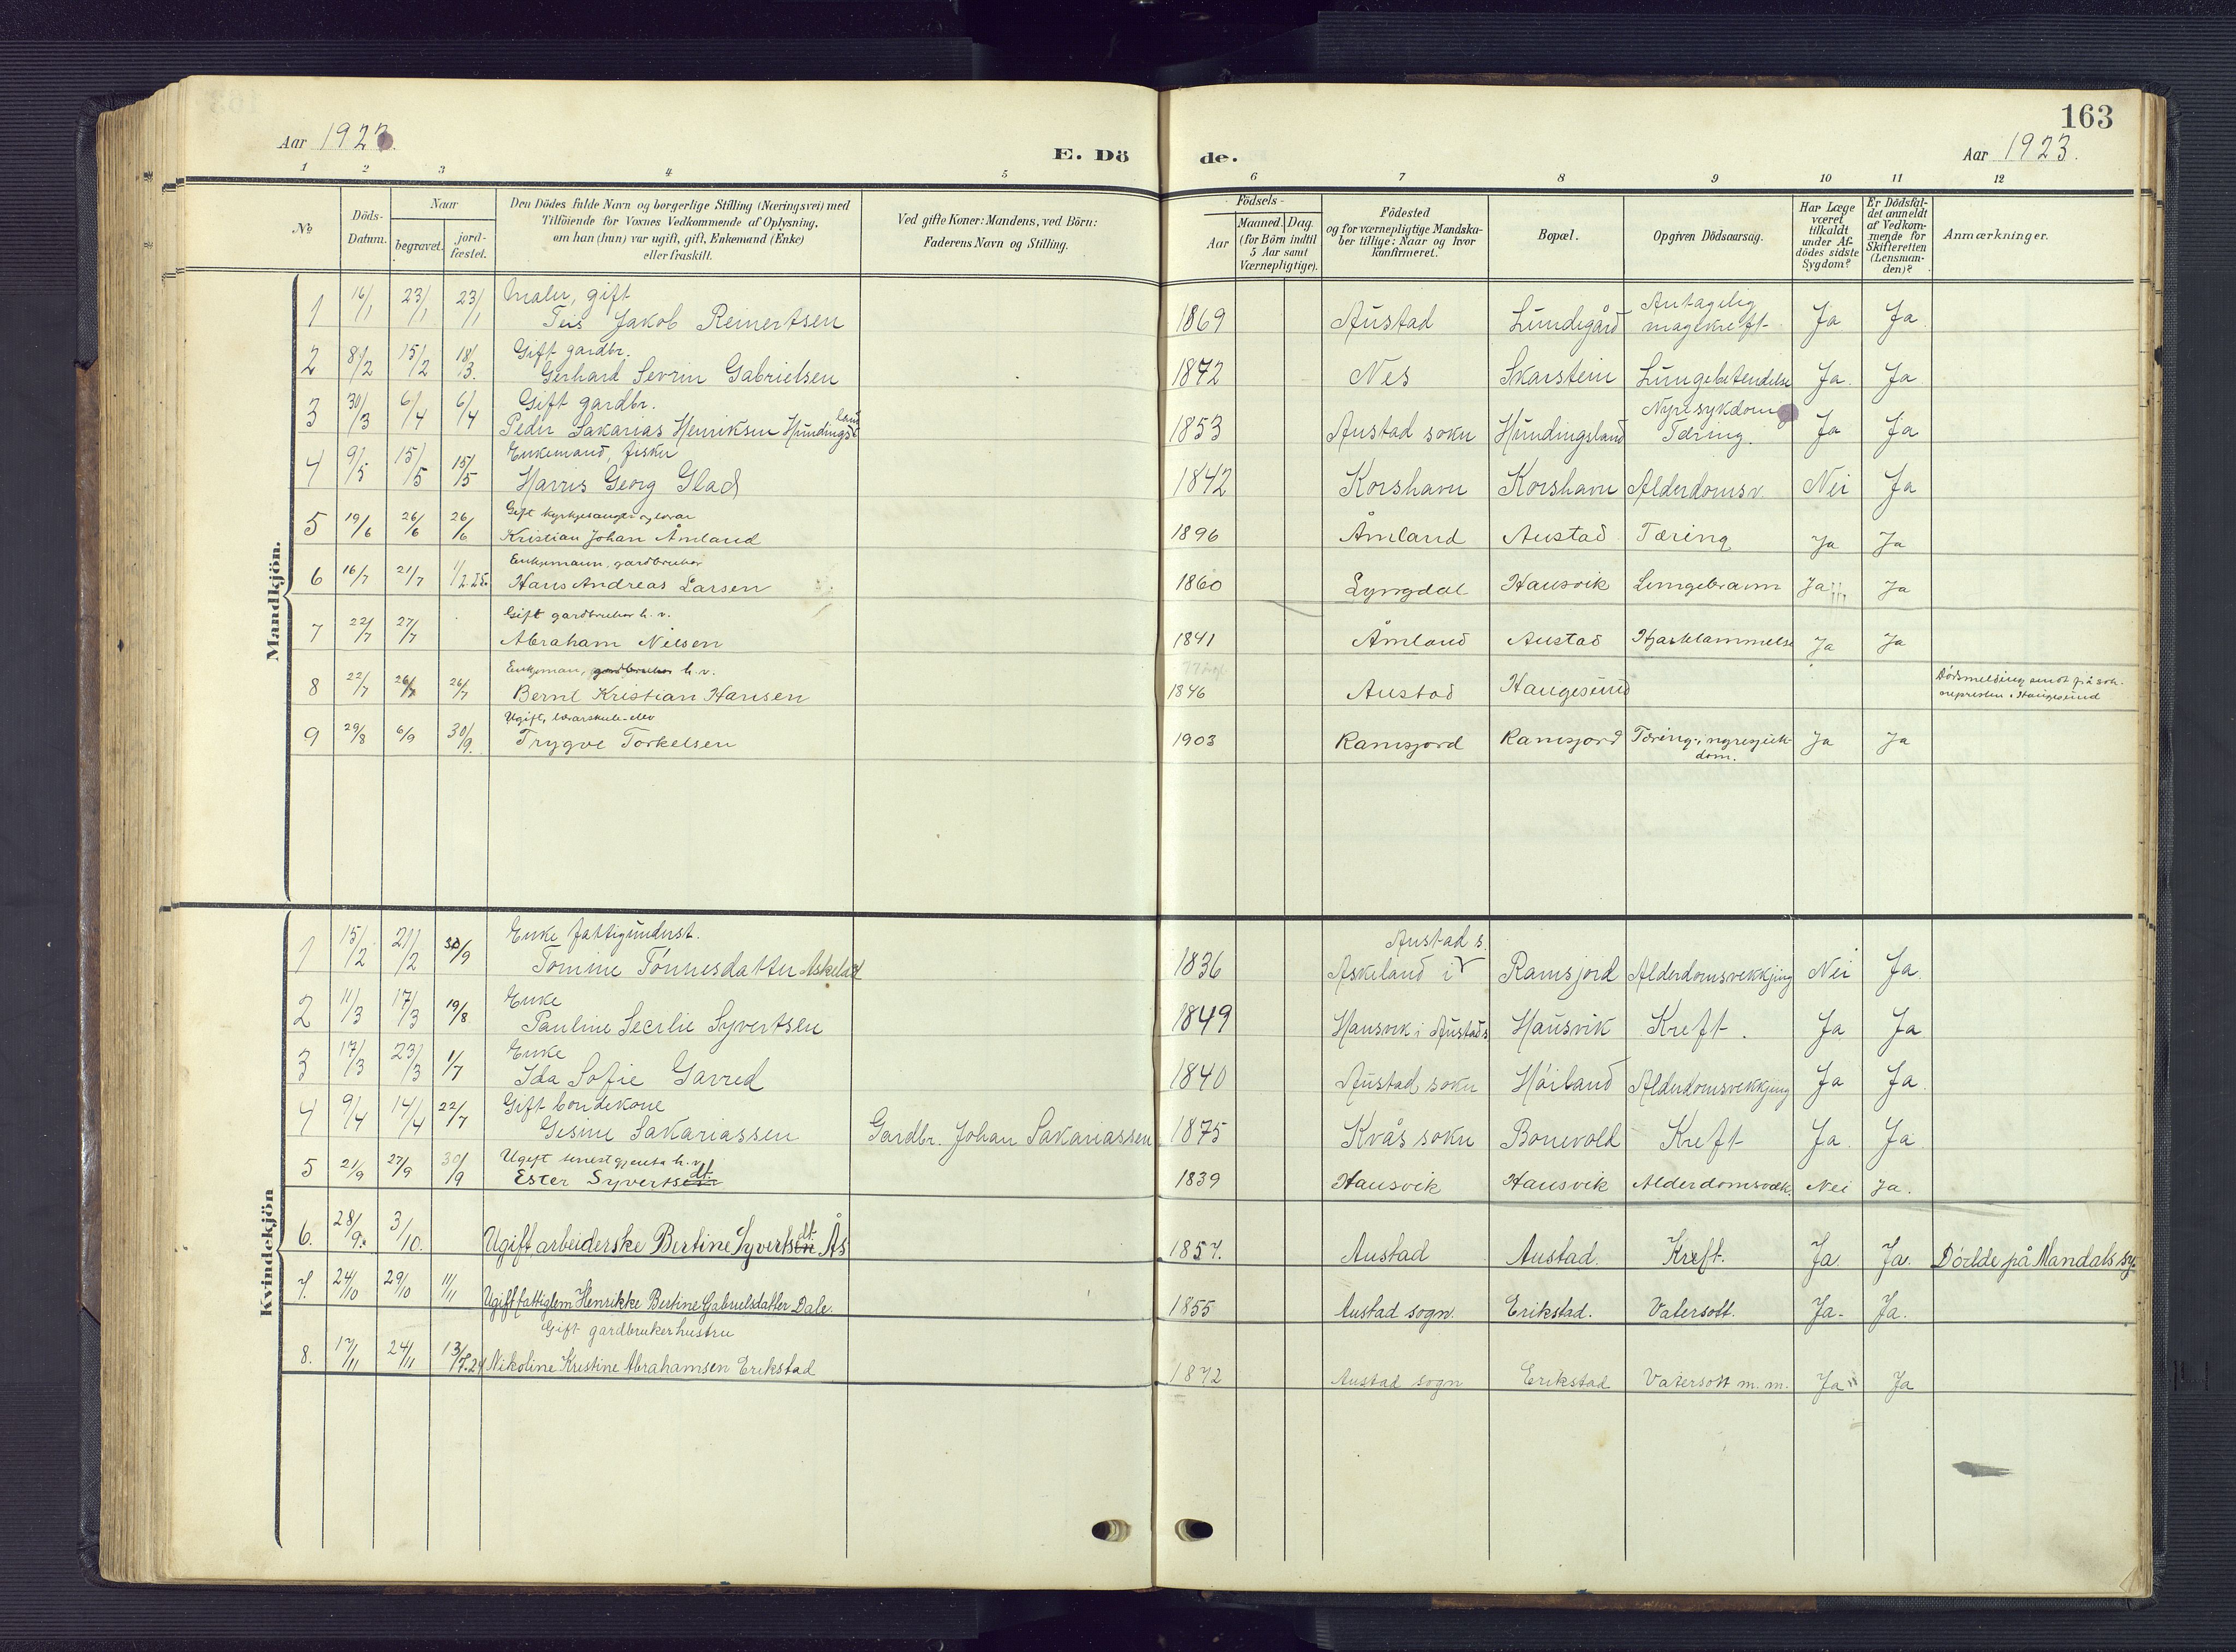 163
Aar 1923.
E. Dö
de.
Aar 1923.
1 2 3 4 5 6 7 8 9 10 11 12
№
Döds-
Datum.
Naar
begravet.
jord-
fæstet.
Den Dödes fulde Navn og borgerlige Stilling (Næringsvei) med
Tilföiende for Voxnes Vedkommende af Oplysning,
om han (hun) var ugift, gift, Enkemand (Enke)
eller fraskilt.
Ved gifte Koner: Mandens, ved Börn:
Faderens Navn og Stilling.
Födsels-
Aar
Maaned. Dag.
(for Börn indtil
5 Aar samt
Værnepligtige).
Födested
og for værnepligtige Mandska-
ber tillige: Naar og hvor
konfirmeret.
Bopæl.
Opgiven Dödsaarsag.
Har Læge
været
tilkaldt
under Af-
dödes sidste
Sygdom?
Er Dödsfal-
det anmeldt
af Vedkom-
mende for
Skifteretten
(Lensman-
den)?
Anmærkninger.
Mandkjön.
Maler, gift
1 16/1 23/1 23/1 Teis Jakob Reinertsen 1869 Austad Lundegård Antagelig magekreft Ja Ja
Gift gardbr.
2 8/2 15/2 18/3. Gerhard Sevrin Gabrielsen 1872 Nes Skarstein Lungebetendelse Ja. Ja
Gift gardbr.
3 30/3 6/4 6/4 Peder Sakarias Henriksen Hundingsland 1853 Austad sokn Hundingsland Nyresykdom Tæring. Ja Ja
Enkemand, fisker
4 9/5 15/5 15/5 Harris Georg Glad 1842 Korshavn Korshavn Alderdomsv. Nei Ja
Gift kyrkjesanger og lærar
5 19/6 26/6 26/6 Kristian Johan Åmland 1896 Åmland Austad Tæring Ja Ja
Enkjemann, gardbruker
6 16/7 21/7 1/2.25. Hans Andreas Larsen 1860 Lyngdal Hausvik Lungebrann Ja Ja
Gift gardbruker h. v.
7 22/7 27/7 Abraham Nilsen 1841 Åmland Austad Hjartelammelse Ja Ja
Enkjeman, gardbruker h. v.
8 22/7 26/7 26/7 Bernt Kristian Hansen 1846 Austad Haugesund Dödsmelding sendt frå sok-
nepresten i Haugesund
Ugift, lærarskule-elev
9 29/8 6/9 30/9. Trygve Torkelsen 1903 Ramsjord Ramsjord Tæring, nyresjuk-
dom. Ja Ja
Kvindekjön
Enke fattigunderst.
1 15/2 21/2 30/9 Tomine Tónnesdatter Askeland 1836 Askeland i Austad s. Ramsjord Alderdomsvekkjing Nei Ja.
Enke
2 11/3 17/3 19/8 Pauline Secilie Syvertsen 1849 Hausvik i Austad s. Hausvik Kreft. Ja Ja
Enke
3 17/3 23/3 1/7 Ida Sofie Gavred 1840 Austad sokn Höiland Alderdomsvekkjing Ja Ja.
Gift bondekone
4 9/4 14/4 22/7 Gesine Sakariassen Gardbr. Johan Sakariassen 1875 Kvås sokn Bonevold Kreft Ja. Ja.
Ugift tenestgjenta h. v.
5 21/9 27/9 30/9 Ester Syvertsen dt. 1839 Hausvik Hausvik Alderdomsvæk. Nei Ja.
6. 28/9. 3/10. Ugift arbeiderske Bertine Syvertsen dt. Ås 1857. Austad Austad. Kreft. Ja. Ja. Döde på Mandals sy.
7. 24/10 29/10 11/11 Ugift fattiglem Henrikke Bertine Gabrielsdatter Dale. 1855 Austad sogn. Erikstad. Vatersott. Ja. Ja.
Gift gardbrukerhustru
8. 17/11 24/11 13/7.24 Nikoline Kristine Abrahamsen Erikstad 1872 Austad sogn Erikstad Vatersott m. m. Ja Ja